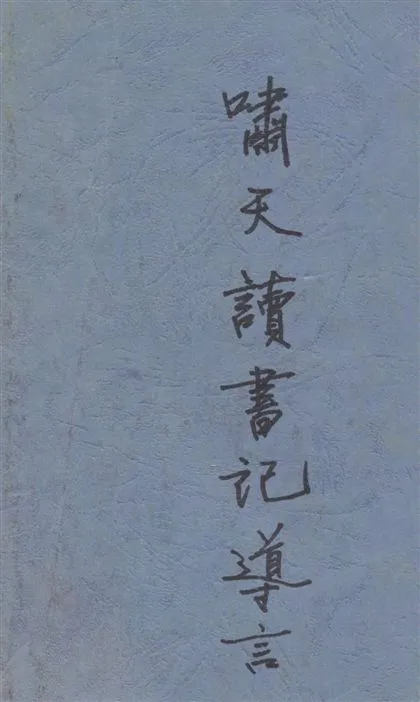 嘯天讀書記導言